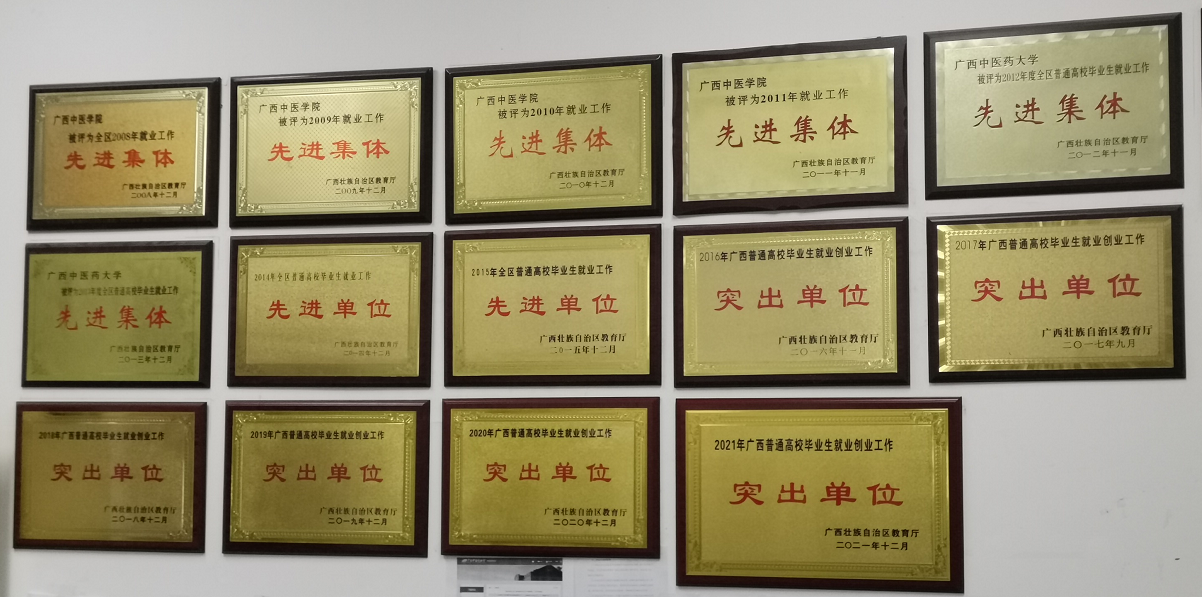 广西中医学院
被评为全区2008年就业工作
先进集体
广西壮族自治区教育厅
二〇〇八年十二月
广西中医学院
被评为2009年就业工作
先进集体
广西壮族自治区教育厅
二〇〇九年十二月
广西中医学院
被评为2010年就业工作
先进集体
广西壮族自治区教育厅
二〇一〇年十二月
广西中医学院
被评为2011年就业工作
先进集体
广西壮族自治区教育厅
二〇一一年十一月
广西中医药大学
被评为2012年度全区普通高校毕业生就业工作
先进集体
广西壮族自治区教育厅
二〇一二年十一月
广西中医药大学
被评为2013年度全区普通高校毕业生就业工作
先进集体
广西壮族自治区教育厅
二〇一三年十二月
2014年全区普通高校毕业生就业工作
先进单位
广西壮族自治区教育厅
二〇一四年十二月
2015年全区普通高校毕业生就业工作
先进单位
广西壮族自治区教育厅
二〇一五年十二月
2016年广西普通高校毕业生就业创业工作
突出单位
广西壮族自治区教育厅
二〇一六年十一月
2017年广西普通高校毕业生就业创业工作
突出单位
广西壮族自治区教育厅
二〇一七年九月
2018年广西普通高校毕业生就业创业工作
突出单位
广西壮族自治区教育厅
二〇一八年十二月
2019年广西普通高校毕业生就业创业工作
突出单位
广西壮族自治区教育厅
二〇一九年十二月
2020年广西普通高校毕业生就业创业工作
突出单位
广西壮族自治区教育厅
二〇二〇年十二月
2021年广西普通高校毕业生就业创业工作
突出单位
广西壮族自治区教育厅
二〇二一年十二月